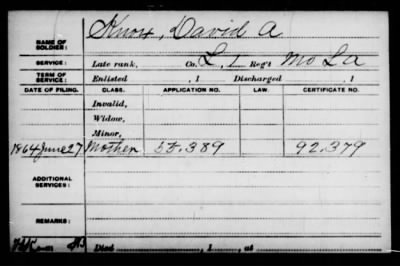 NAME OF SOLDIER: Knox, David A
SERVICE: Late rank, Co. L, 1 Reg't Mo L a
TERM OF SERVICE: Enlisted , 1 Discharged , 1
DATE OF FILING. CLASS. APPLICATION NO. LAW. CERTIFICATE NO.
Invalid,
Widow,
Minor,
1864 June 27 Mother 55.389 92.379
ADDITIONAL SERVICES:
REMARKS:
Died , 1 , at